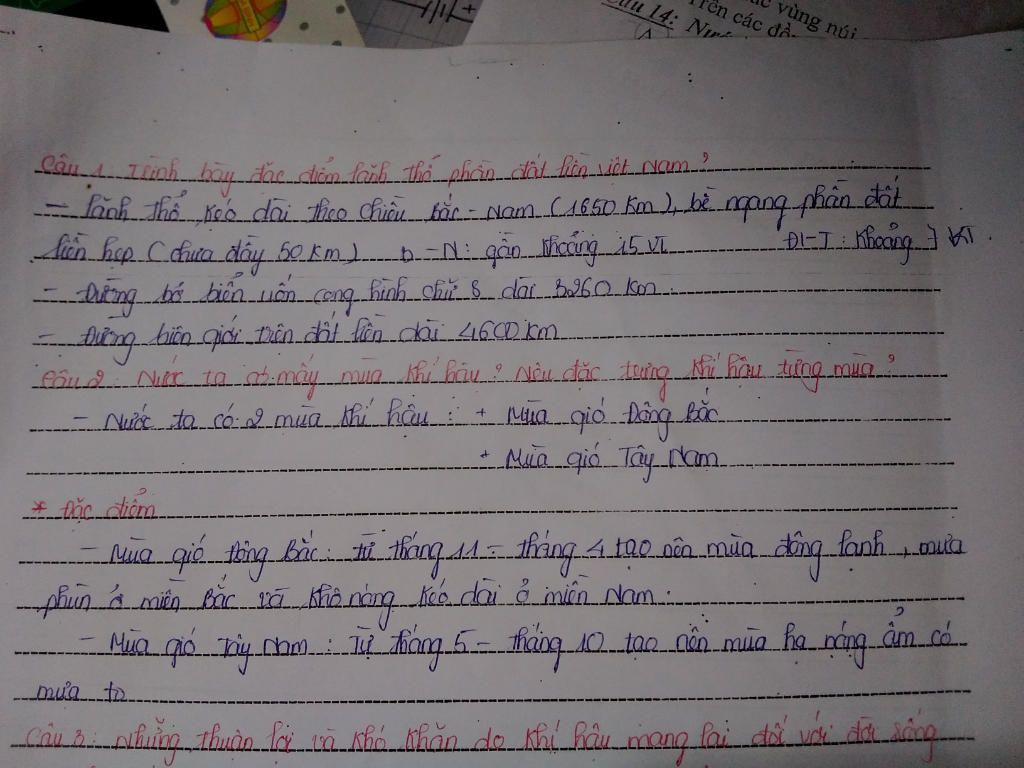 ác vùng núi
Trên các đồ
Câu 14: Nướ
Câu 1: Trình bày đặc điểm lãnh thổ phần đất liền việt Nam?
- Lãnh thổ kéo dài theo chiều Bắc - Nam (1650 Km), bề ngang phần đất
liền hẹp (chưa đầy 50 Km) B - N: gần khoảng 15 VT Đ-T: Khoảng 7 KT.
- Đường bờ biển uốn cong hình chữ S dài 3260 Km.
- Đường biên giới trên đất liền dài 4600 km
Câu 2: Nước ta có mấy mùa khí hậu? Nêu đặc trưng khí hậu từng mùa?
- Nước ta có 2 mùa khí hậu: + Mùa gió Đông Bắc
+ Mùa gió Tây Nam
* Đặc điểm
- Mùa gió Đông Bắc: từ tháng 11 - tháng 4 tạo nên mùa đông lạnh, mưa
phùn ở miền Bắc và khô nóng kéo dài ở miền Nam.
- Mùa gió Tây Nam: Từ tháng 5 - tháng 10 tạo nên mùa hạ nóng ẩm có
mưa to
Câu 3: Những thuận lợi và khó khăn do khí hậu mang lại đối với đời sống